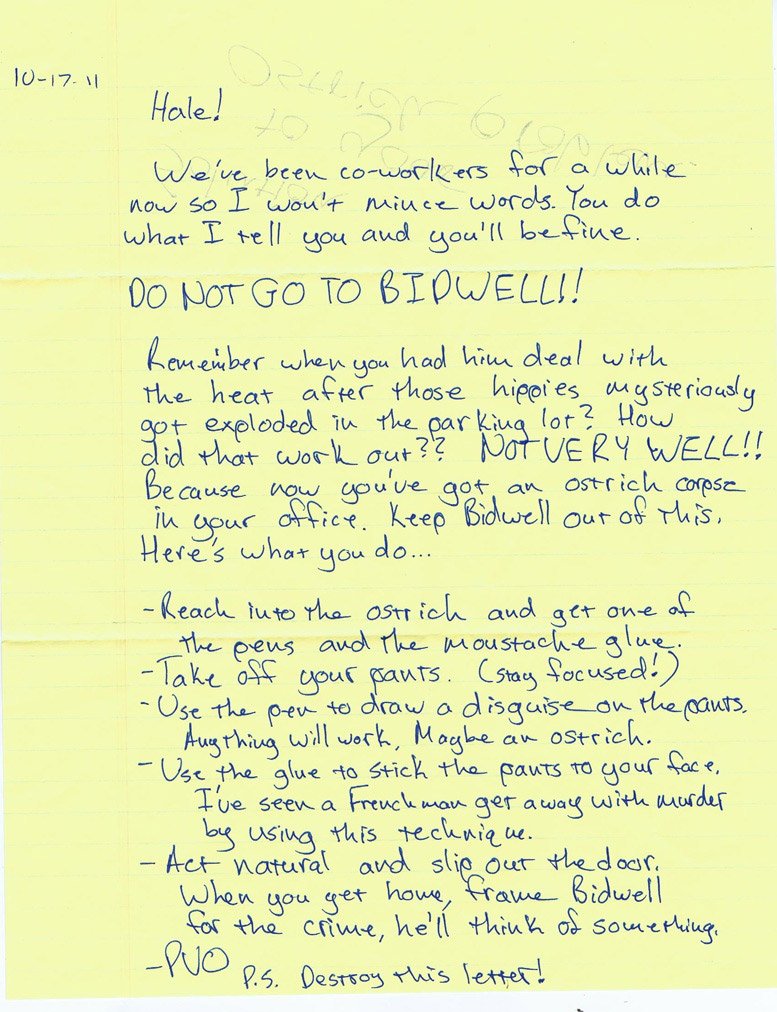 10-17-11
Hale!
We've been co-workers for a while
now so I won't mince words. You do
what I tell you and you'll be fine.
DO NOT GO TO BIDWELL!!
Remember when you had him deal with
the heat after those hippies mysteriously
got exploded in the parking lot? How
did that work out?? NOT VERY WELL!!
Because now you've got an ostrich corpse
in your office. Keep Bidwell out of this.
Here's what you do...
- Reach into the ostrich and get one of
the pens and the moustache glue.
- Take off your pants. (Stay focused!)
- Use the pen to draw a disguise on the pants.
Anything will work, Maybe an ostrich.
- Use the glue to stick the pants to your face.
I've seen a Frenchman get away with murder
by using this technique.
- Act natural and slip out the door.
When you get home, frame Bidwell
for the crime, he'll think of something.
-PVO P.S. Destroy this letter!